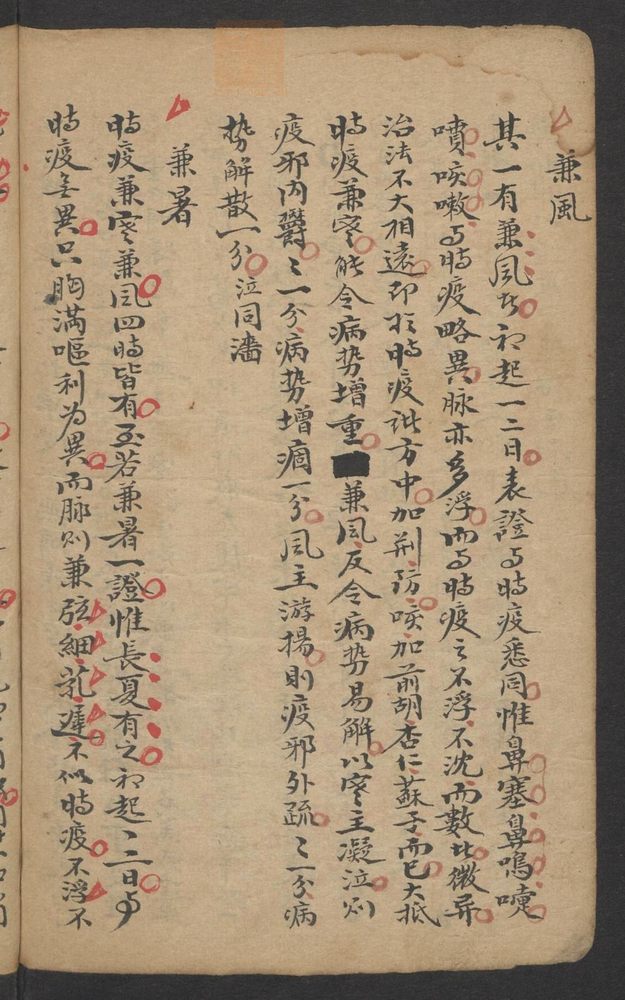 兼風
其一有兼風者初起一二日表證与時疫悉同惟鼻塞鼻鳴嚏
噴咳嗽与時疫略異脉亦多浮而与時疫之不浮不沈而數比微异
治法不大相遠即於時疫諸方中加荆防咳加前胡杏仁蘇子而已大抵
時疫兼寒能令病势增重兼風反令病势易解以寒主凝泣則
疫邪内欝〻一分病势增痼一分風主游揚則疫邪外疏〻一分病
势解散一分泣同濇
兼暑
時疫兼寒兼風四時皆有至若兼暑一證惟長夏有之初起一二日与
時疫無異只胸满嘔利为異而脉則兼弦細芤遲不似時疫不浮不